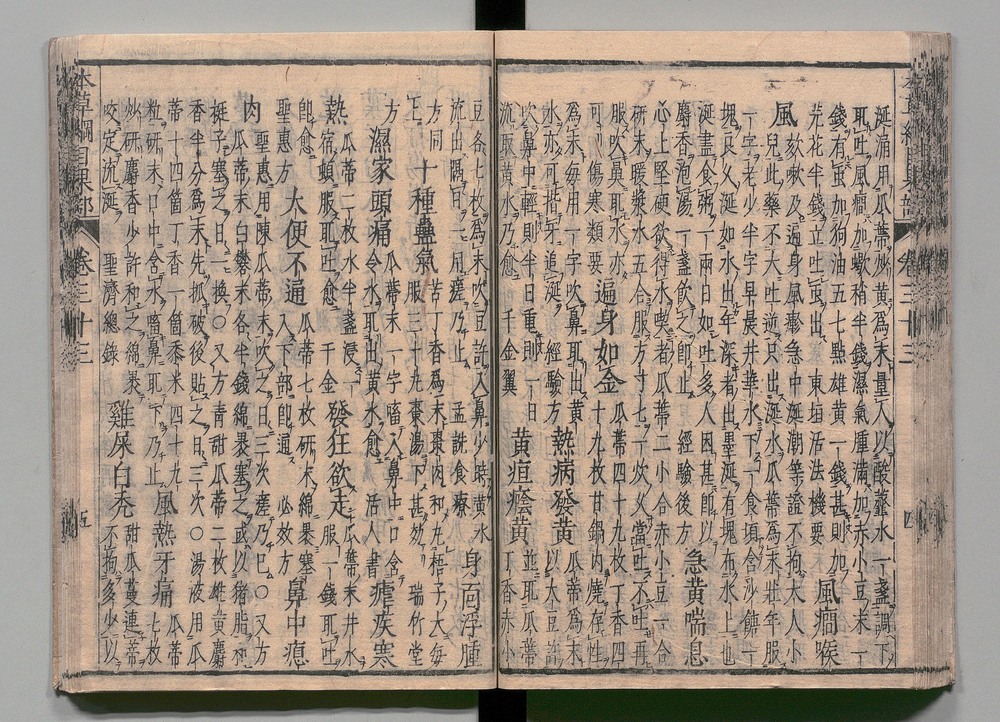 涎涌用瓜蒂炒黃爲末量人以酸虀水一盞調下
取吐風癇加蠍稍半錢濕氣腫滿加赤小豆末一
錢有蟲加狗油五七點雄黃一錢甚則加
芫花半錢立吐蟲出 東垣活法機要 風癇喉
風 欬嗽及遍身風疹急中涎潮等證不拘大人小
兒此藥不大吐逆只出涎水瓜蒂爲末壯年服
一字老少半字早晨井華水下一食頃含沙餹一
塊良久涎如水出年深者出墨涎有塊布水上也
涎盡食粥一兩日如吐多人困甚即以
麝香泡湯一盞飲之即止 經驗後方 急黃喘息
心上堅硬欲得水喫者瓜蒂二小合赤小豆一合
研末暖漿水五合服方寸匕一炊久當吐不吐再
服吹鼻取水亦可 遍身如金 瓜蒂四十九枚丁香四
十九枚甘鍋內燒存性
爲末每用一字吹鼻取出黃
水亦可揩牙追涎 經驗方 熱病發黃 瓜蒂爲末
以大豆許
吹鼻中輕則半日重則一日
流取黃水乃愈 千金翼 黃疸癊黃 並取瓜蒂
丁香赤小
豆各七枚爲末吹豆許入鼻少時黃水
流出隔日一用瘥乃止 孟詵食療 身面浮腫
方同
上 十種蠱氣 苦丁香爲末棗肉和丸梧子大每
服三十丸棗湯下甚效 瑞竹堂
方 濕家頭痛 瓜蒂末一字㗜入鼻中口含
冷水取出黃水愈 活人書 瘧疾寒
熱 瓜蒂二枚水半盞浸一
宿頓服取吐愈 千金 發狂欲走 瓜蒂末井水
服一錢取吐
即愈
聖惠方 大便不通 瓜蒂七枚研末綿裹塞
入下部即通 必效方 鼻中瘜
肉 聖惠用陳瓜蒂末吹之日三次瘥乃已○又方
瓜蒂末白礬末各半錢綿裹塞之或以猪脂和
挺子塞之日一換○又方青甜瓜蒂二枚雄黃麝
香半分爲末先抓破後貼之日三次○湯液用瓜
蒂十四箇丁香一箇黍米四十九
粒研末口中含水㗜鼻取下乃止 風熱牙痛 瓜蒂
七枚
炒研麝香少許和之綿裹
咬定流涎 聖濟總錄 雞屎白禿 甜瓜蔓連蒂
不拘多少以
本草綱目果部 卷三十三 五
卷三十三 四